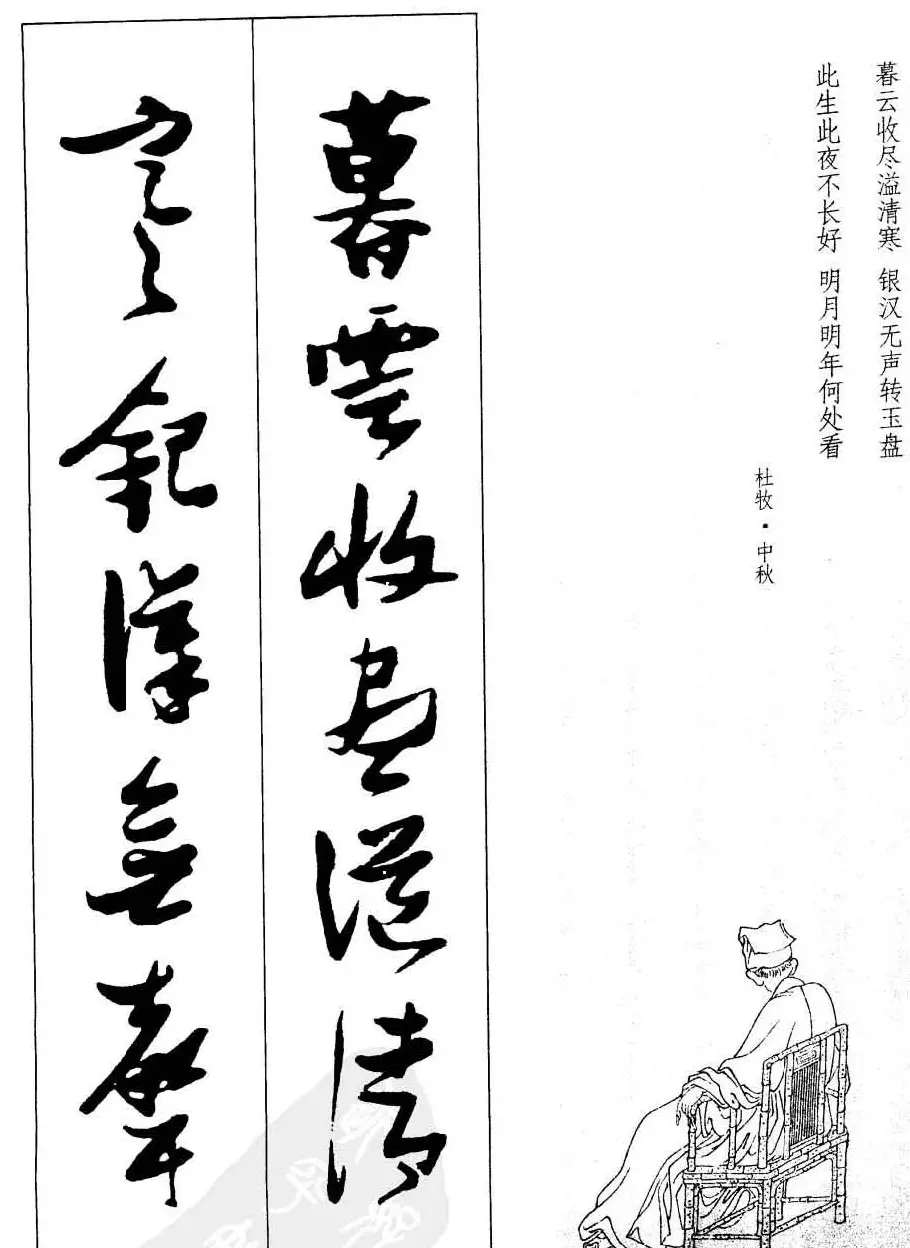 暮云收尽溢清寒 银汉无声转玉盘
此生此夜不长好 明月明年何处看
杜牧·中秋
暮雲收盡溢清
寒銀漢無聲